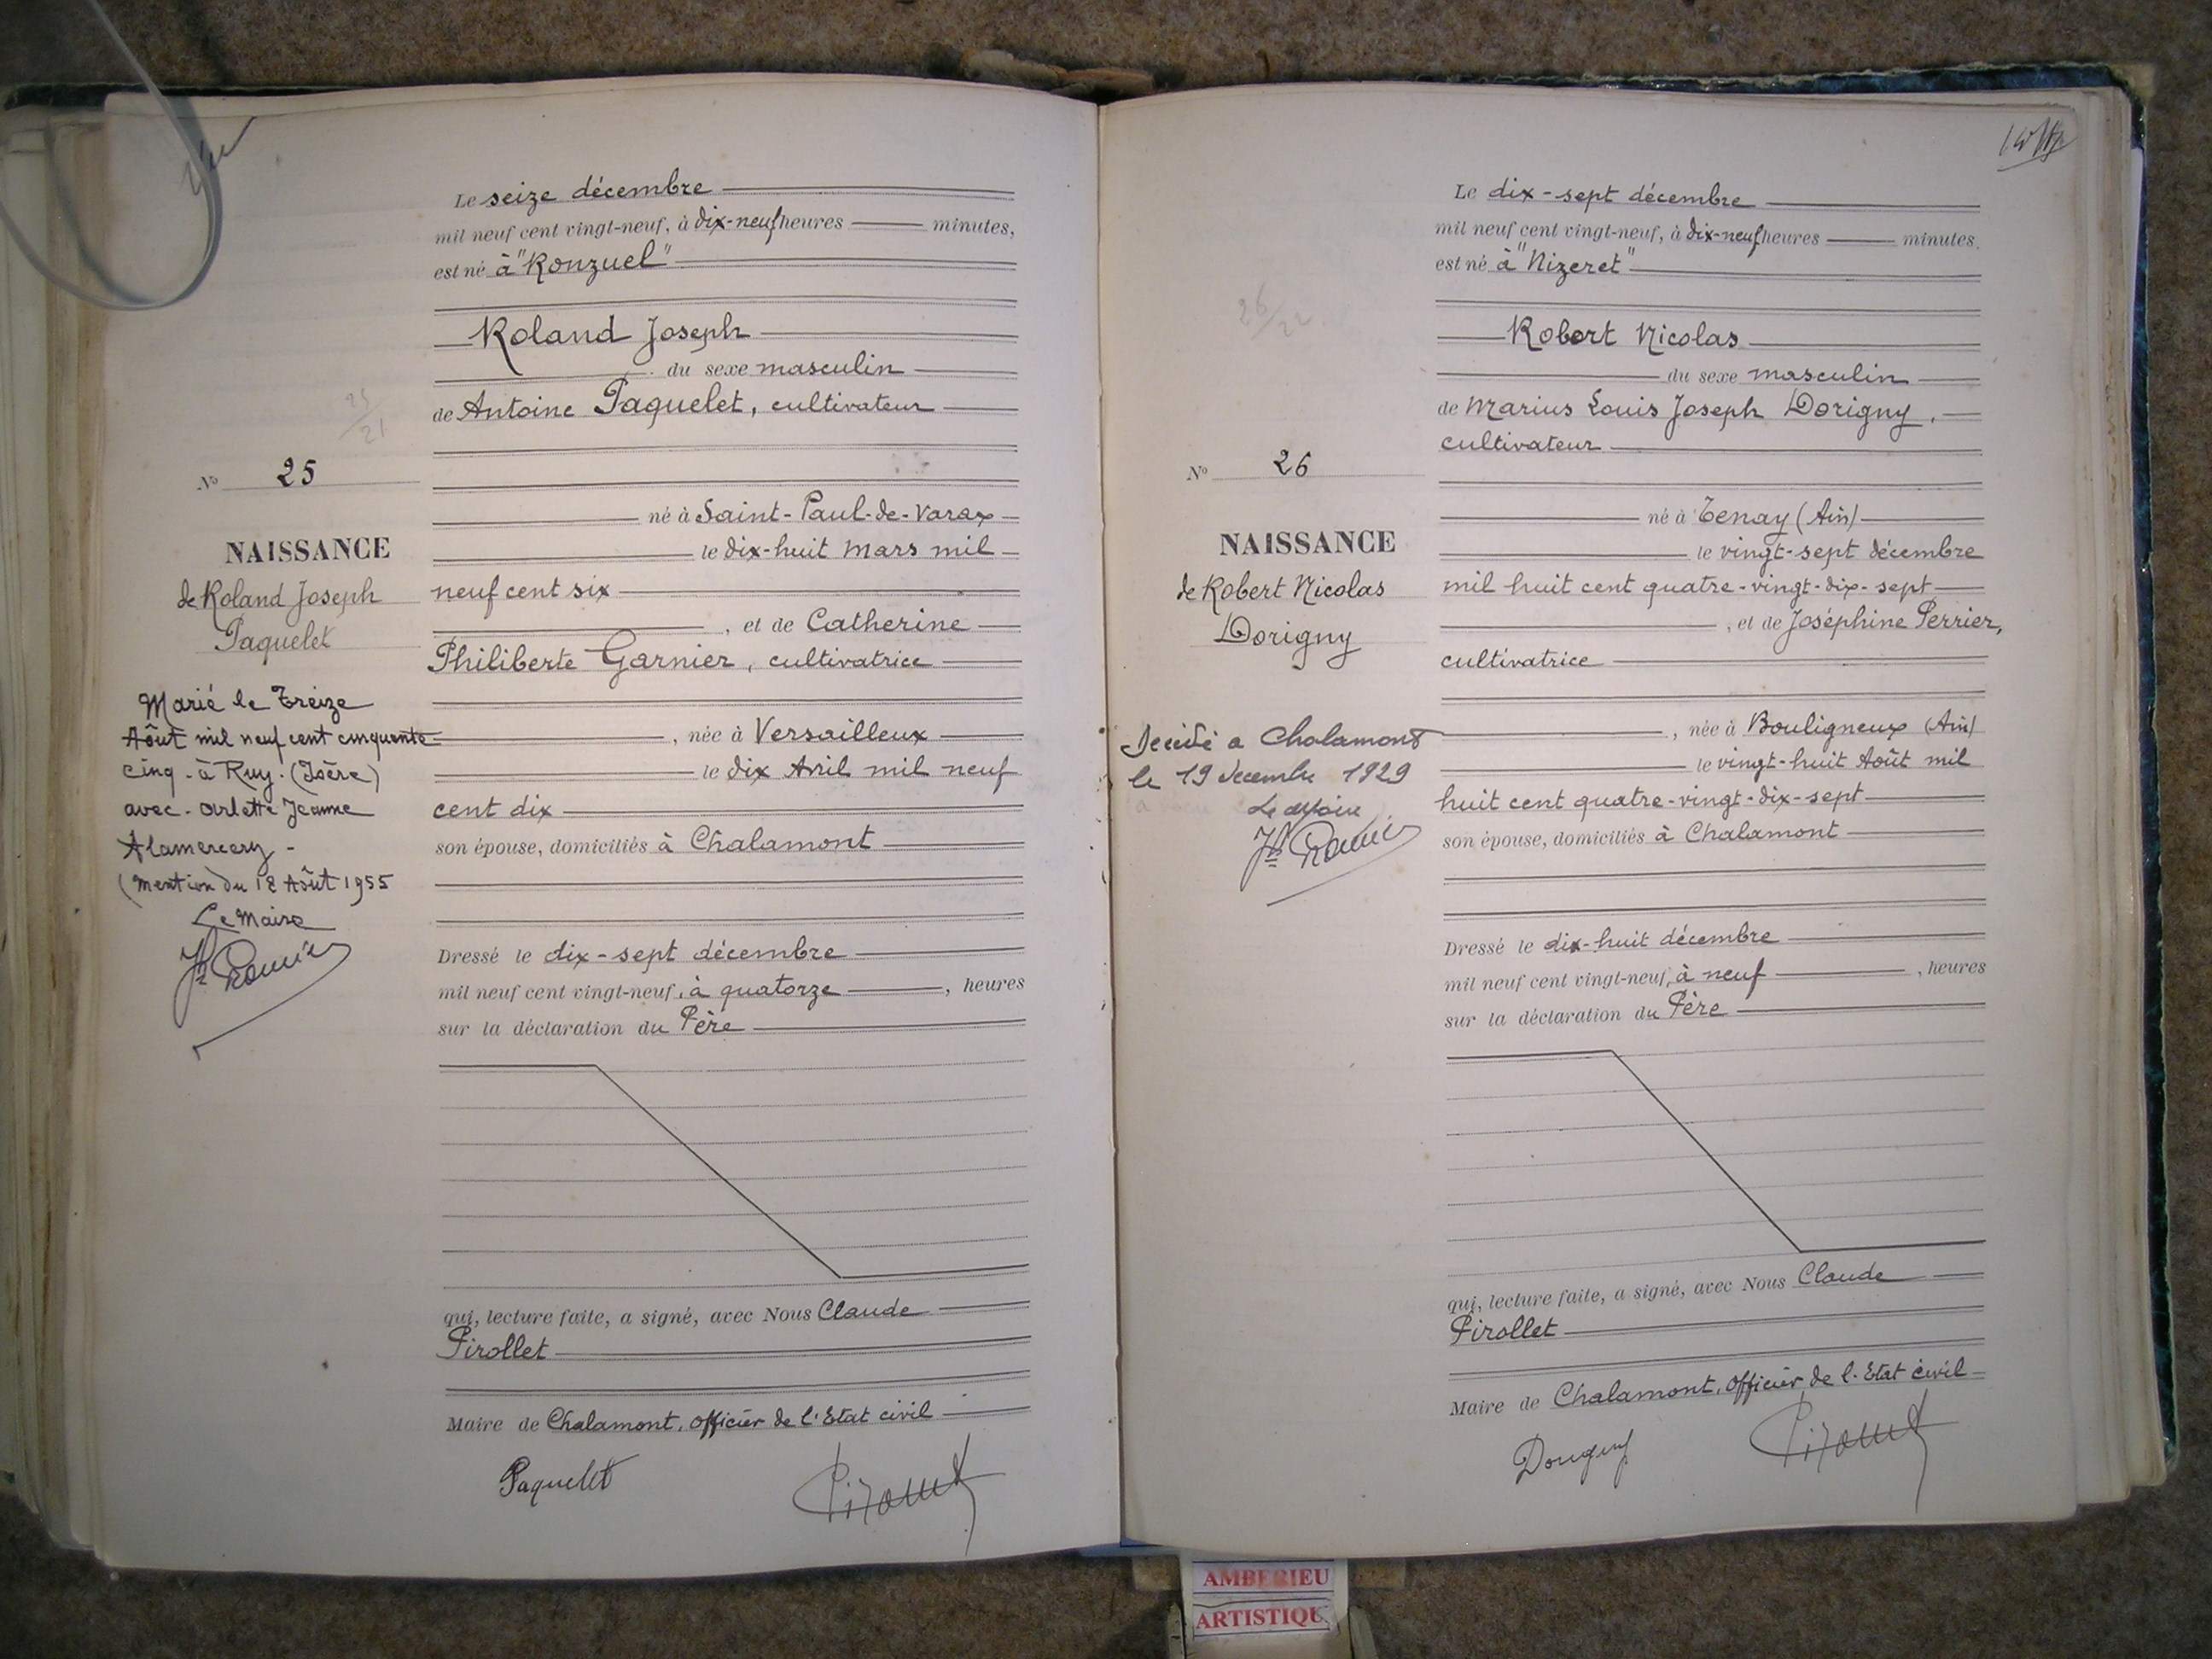 Le seize décembre
mil neuf cent vingt-neuf, à dix-neuf heures minutes,
est né à "Ronzuel"
Roland Joseph
du sexe masculin
de Antoine Paquelet, cultivateur
25
21
N° 25
né à Saint-Paul-de-Varax
NAISSANCE
le dix-huit mars mil
de Roland Joseph
neuf cent six
Paquelet
, et de Catherine
Philiberte Garnier, cultivatrice
Marié le Treize
Août mil neuf cent cinquante
cinq - à Ruy - (Isère)
avec - Arlette Jeanne
Alamercery -
(Mention du 18 Août 1955
Le Maire
, née à Versailleux
le dix Avril mil neuf
cent dix
son épouse, domiciliés à Chalamont
Dressé le dix-sept décembre
mil neuf cent vingt-neuf, à quatorze , heures
sur la déclaration du Père
qui, lecture faite, a signé, avec Nous Claude
Pirollet
Maire de Chalamont, officier de l'Etat civil
Paquelet
Le dix-sept décembre
mil neuf cent vingt-neuf, à dix-neuf heures minutes.
est né à "Nizeret"
26/22
Robert Nicolas
du sexe masculin
de Marius Louis Joseph Dorigny,
cultivateur
N° 26
né à Tenay (Ain)
NAISSANCE
le vingt-sept décembre
de Robert Nicolas
mil huit cent quatre-vingt-dix-sept
Dorigny
, et de Joséphine Perrier,
cultivatrice
Décédé a Chalamont
le 19 decembre 1929
Le Maire
, née à Bouligneux (Ain)
le vingt-huit Août mil
huit cent quatre-vingt-dix-sept
son épouse, domiciliés à Chalamont
Dressé le dix-huit décembre
mil neuf cent vingt-neuf, à neuf , heures
sur la déclaration du Père
qui, lecture faite, a signé, avec Nous Claude
Pirollet
Maire de Chalamont, officier de l'Etat civil
Dorigny
AMBERIEU
ARTISTIQU